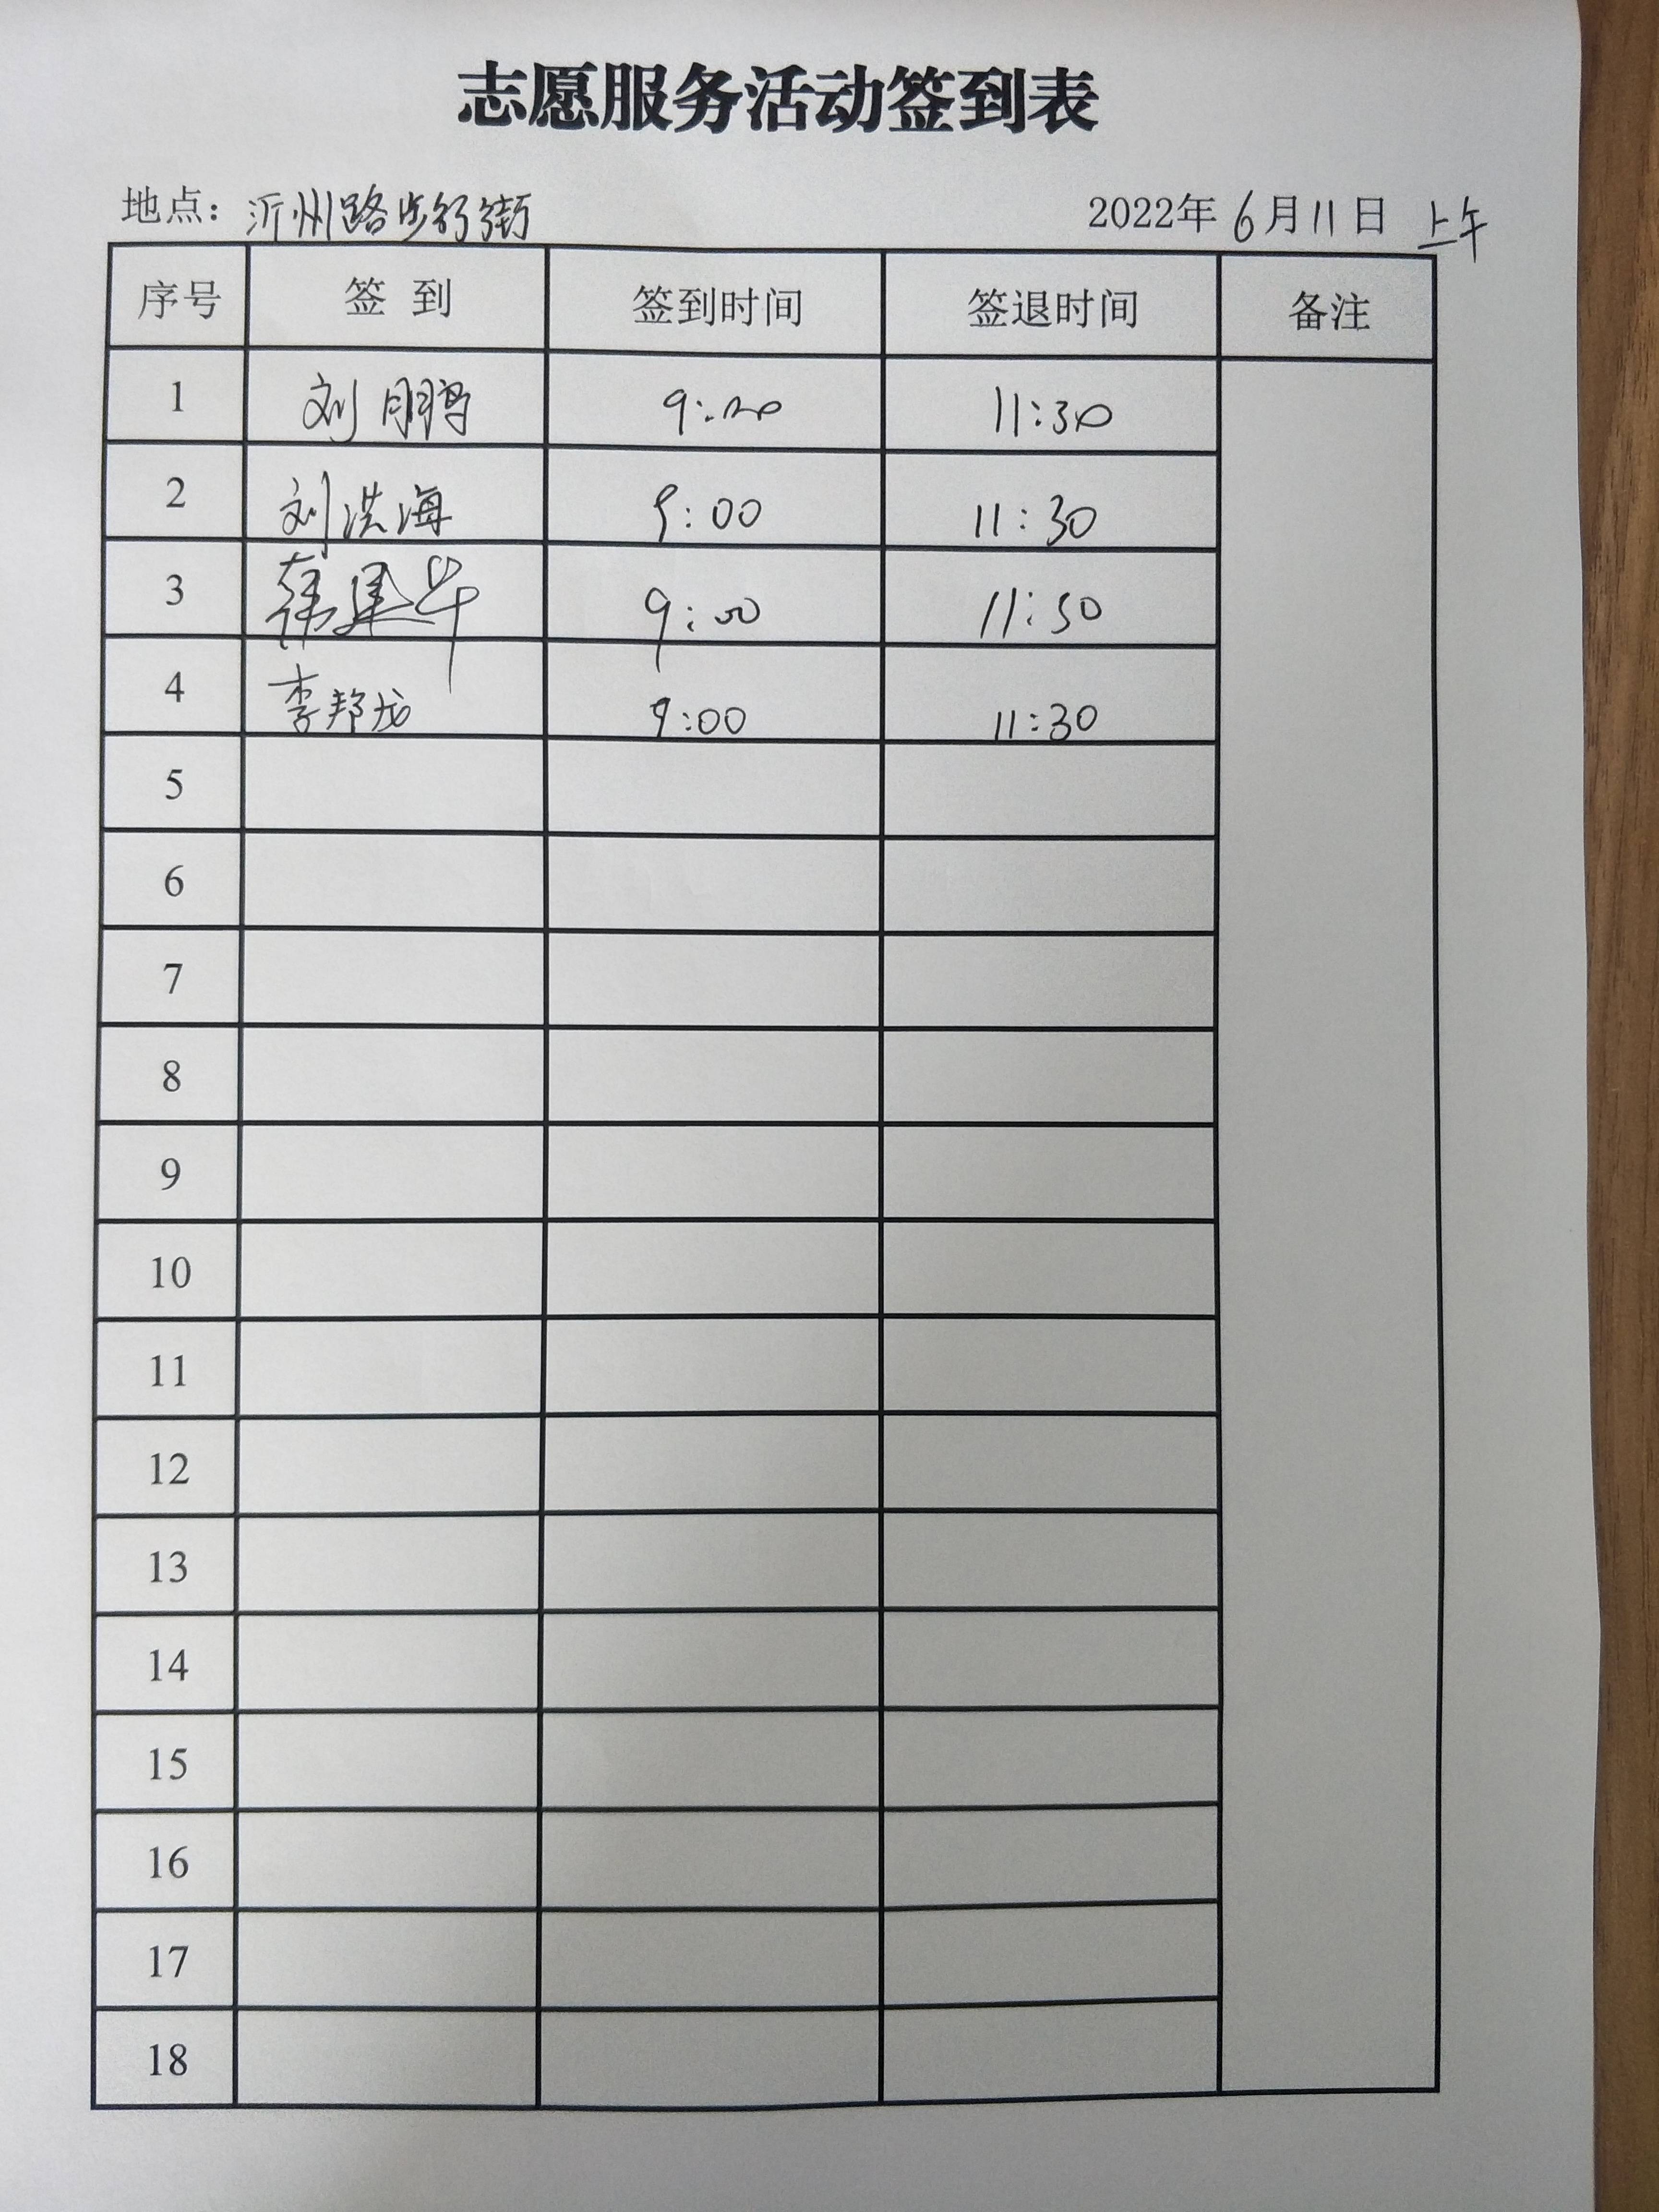 志愿服务活动签到表
地点：沂州路步行街 2022年6月11日 上午
序号 签到 签到时间 签退时间 备注
1 刘鹏 9:00 11:30
2 刘洪海 9:00 11:30
3 韩建华 9:00 11:30
4 李邦龙 9:00 11:30
5
6
7
8
9
10
11
12
13
14
15
16
17
18